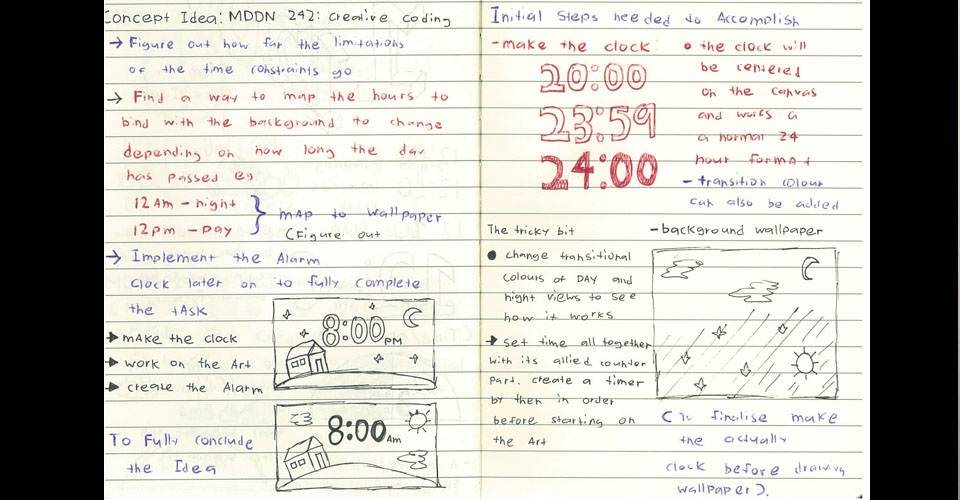 Concept Idea: MDDN 242: creative coding
→ Figure out how far the limitations
of the time constraints go
→ Find a way to map the hours to
bind with the background to change
depending on how long the day
has passed eg
12 Am - night
12 pm - Day
map to wallpaper
(Figure out
→ Implement the Alarm
clock later on to fully complete
the task
→ make the clock
→ work on the Art
→ create the Alarm
8:00 PM
8:00 Am
To Fully conclude
the Idea
Initial Steps needed to Accomplish
- make the clock
20:00
23:59
24:00
• the clock will
be centered
on the canvas
and works a
a normal 24
hour format
- transition colour
can also be added
The tricky bit
• change transitional
colours of DAY and
night views to see
how it works
→ set time all together
with its allied counter
part. create a timer
by then in order
before starting on
the Art
- background wallpaper
(To finalise make
the actually
clock before drawing
wallpaper).